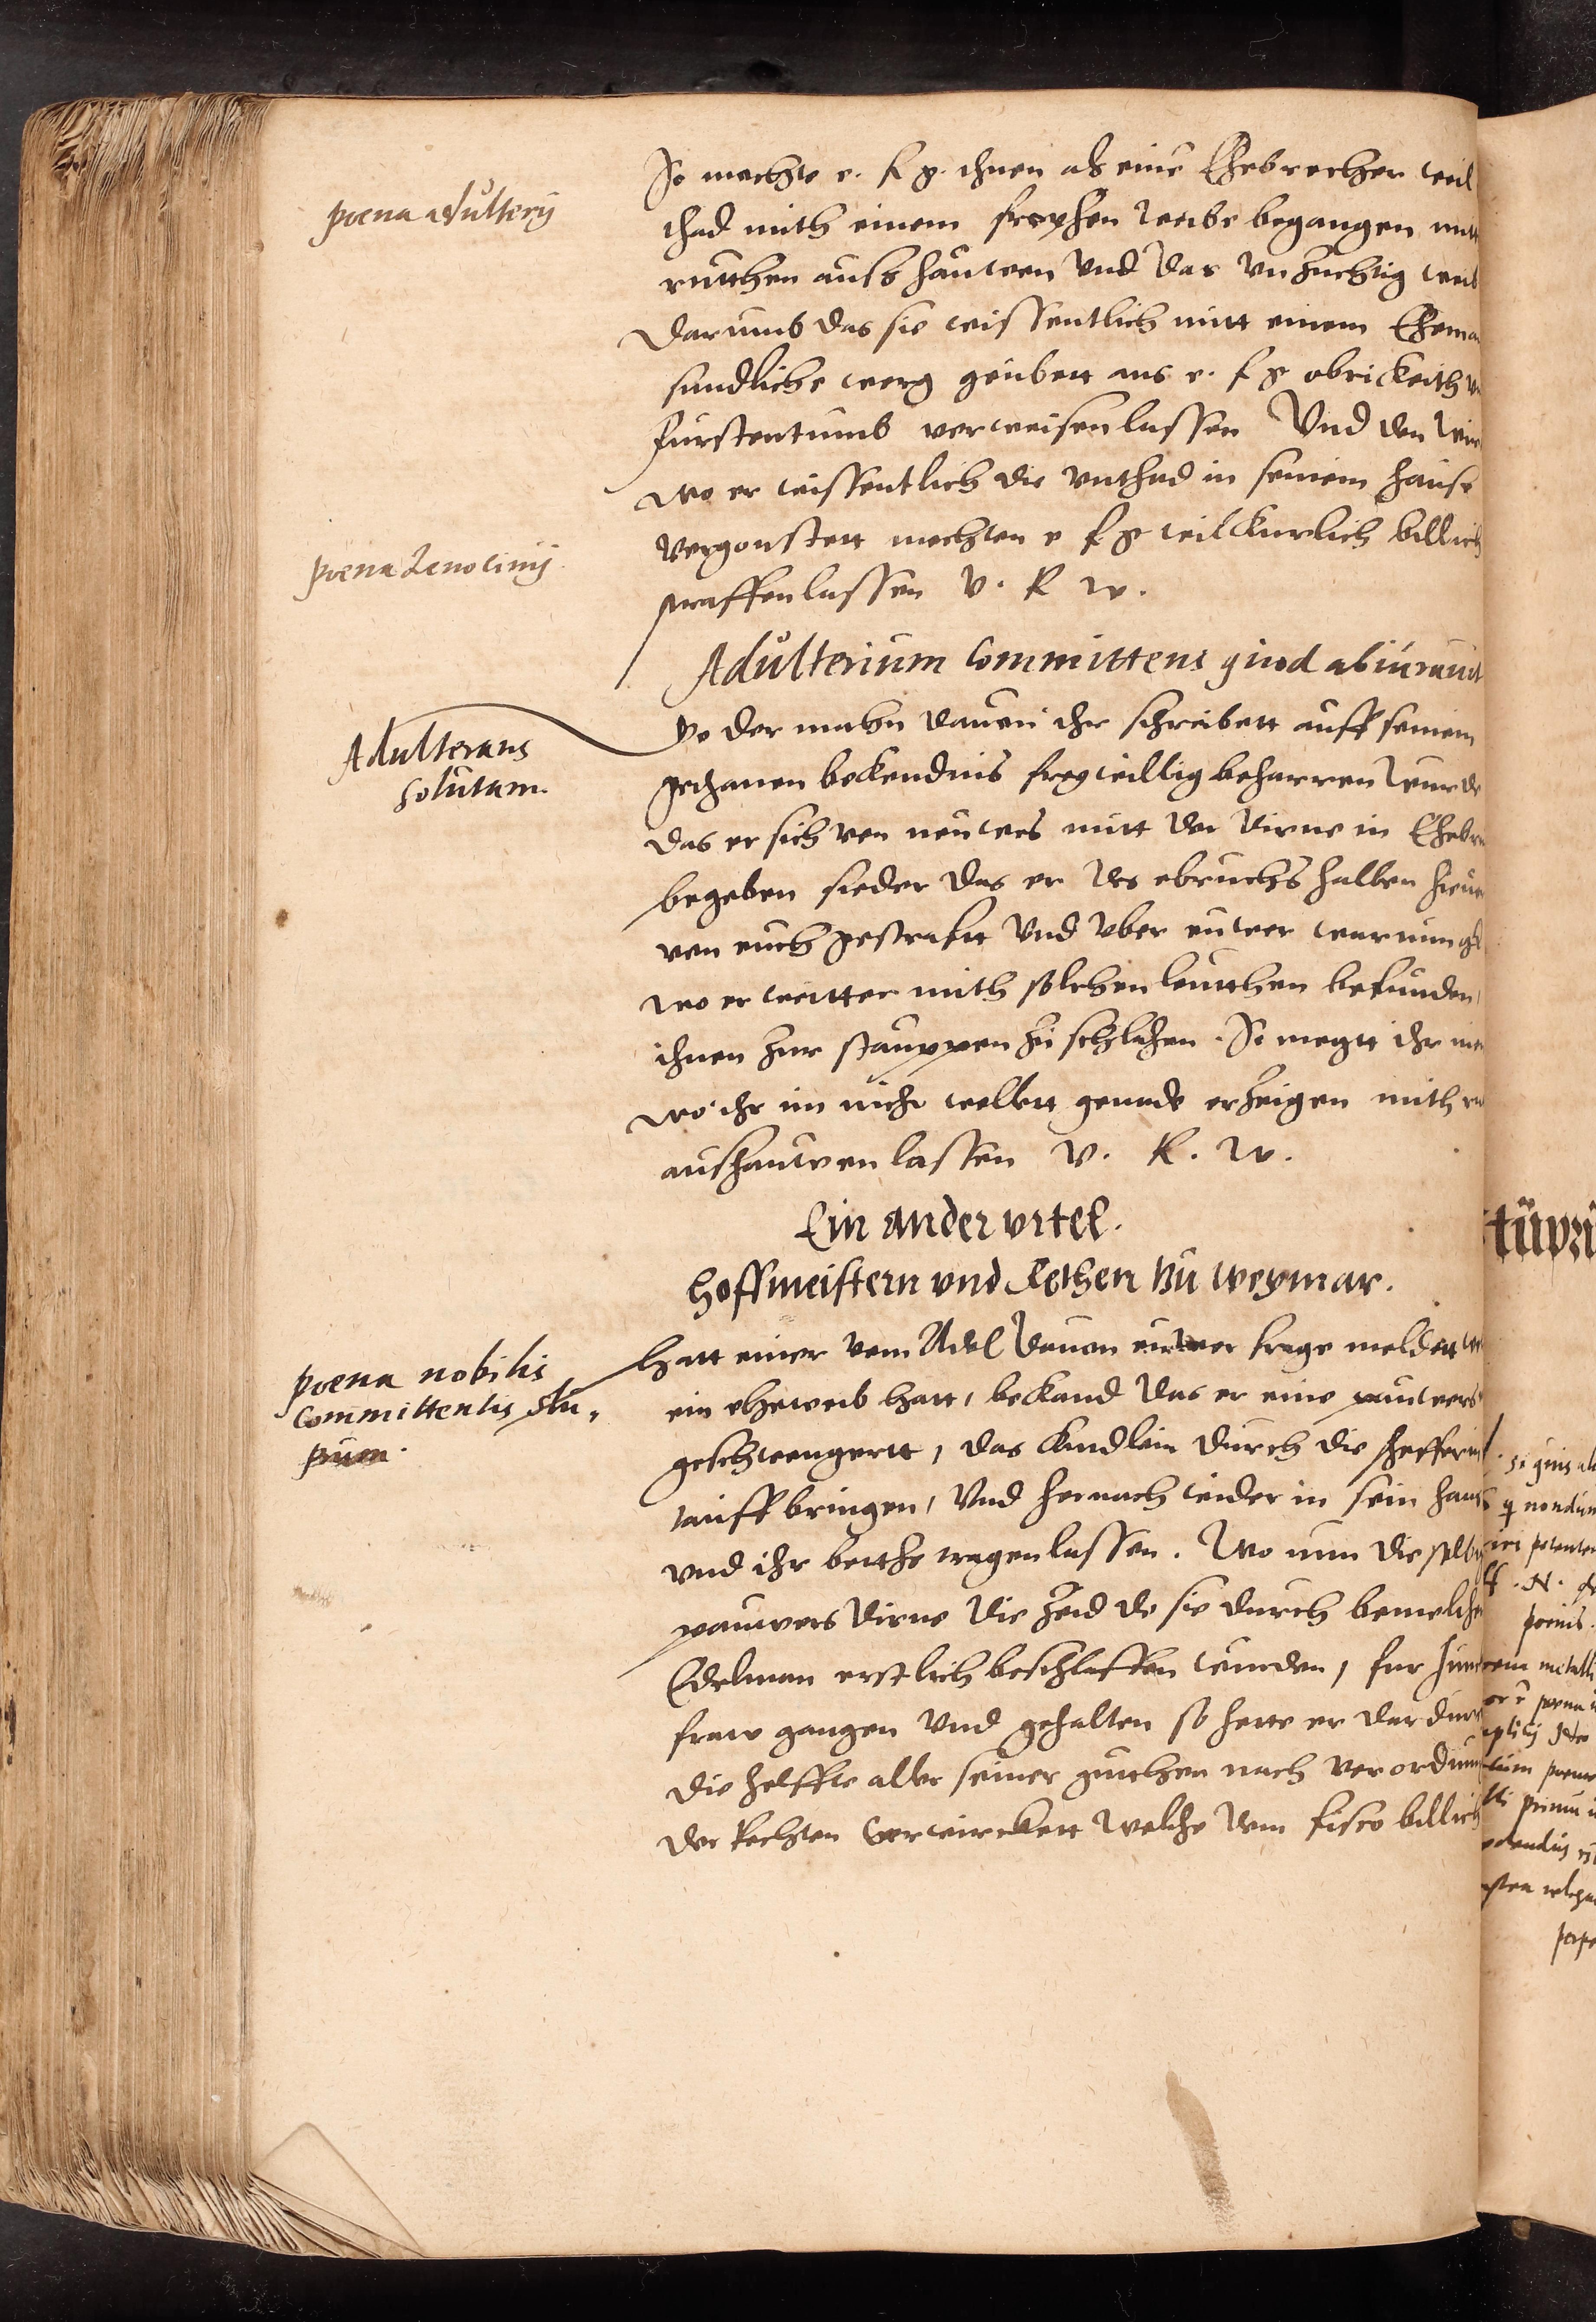 So mochte e. f g. ihnen als eine Ehebrecher weil
poena adulterij
thad mith einem freyhen weibe begangen mitt
rutthen aufs hauwen Vnd das vnzuchtig weib
Darumb das sie wissentlich mitt einem Eheman
sundliche werg geubett aus e. f g obrickeith
furstentumb verweisen lassen Vnd den wir
wo er wissentlich die vnthad in seinem hause
vergonstett mochten e f g wilckurlich billich
poena Lenocinij.
straffen lassen V. R w.
Adulterium Committens quod abiurauit
Adulterans
solutam.
So der mahn dauon ihr schreibett auff seinem
gethanen bekendnis freywillig beharren wurde
das er sich von neuwes mitt der dirne in Ehebru
begeben sieder das er des ebruchs halben hieuo
von euch gestrafft Vnd vber euwer warnung
wo er weitter mith solchen leutthen befunden,
ihnen zur stauppen zu schlahen. So megtt ihr inen
wo ihr im nicht wollett genade erzeigen mith ru
aushauwen lassen V. R. W.
Ein ander vrtel.
Hoffmeistern vnd Rethen zu weymar.
poena nobilis
committentis Stu,
prum.
Hatt einer vom Adel dauon euwer frage meldett
ein eheweib hatt, bekand das er eine pauwers
geschwengertt, das kindlein durch die schefferin
tauff bringen, Vnd hernach wider in sein haus
vnd ihr betthe tragen lassen. Wo nun die selbig
pauwers dirne die zeid do sie durch bemelthe
Edelman erstlich beschlaffen wurden, fur Jun
fraw gangen Vnd gehalten so hette er dardurc
die helffte aller seiner gutther nach verordnun
der Rechten verwirckett welche dem fisco billich